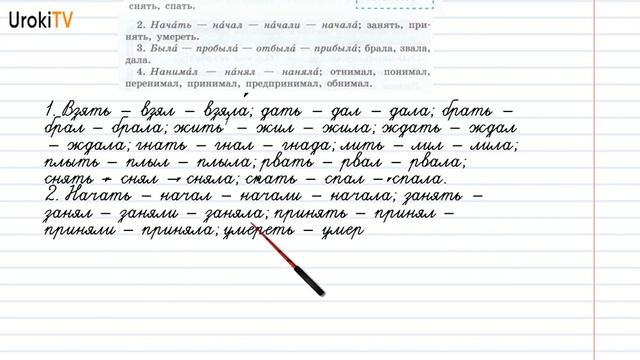 UrokiTV
снять, спать.
2. Нача́ть — на́чал — на́чали — начала́; занять, при-
нять, умереть.
3. Была́ — пробыла́ — отбыла́ — прибыла́; брала, звала,
дала.
4. Нанима́л — на́нял — наняла́; отнимал, понимал,
перенимал, принимал, предпринимал, обнимал.
1. Взять – взял – взяла́; дать – дал – дала; брать –
брал – брала; жить – жил – жила; ждать – ждал
– ждала; гнать – гнал – гнала; лить – лил – лила;
плыть – плыл – плыла; рвать – рвал – рвала;
снять – снял – сняла; спать – спал – спала.
2. Начать – начал – начали – начала; занять –
занял – заняли – заняла; принять – принял –
приняли – приняла; умереть – умер